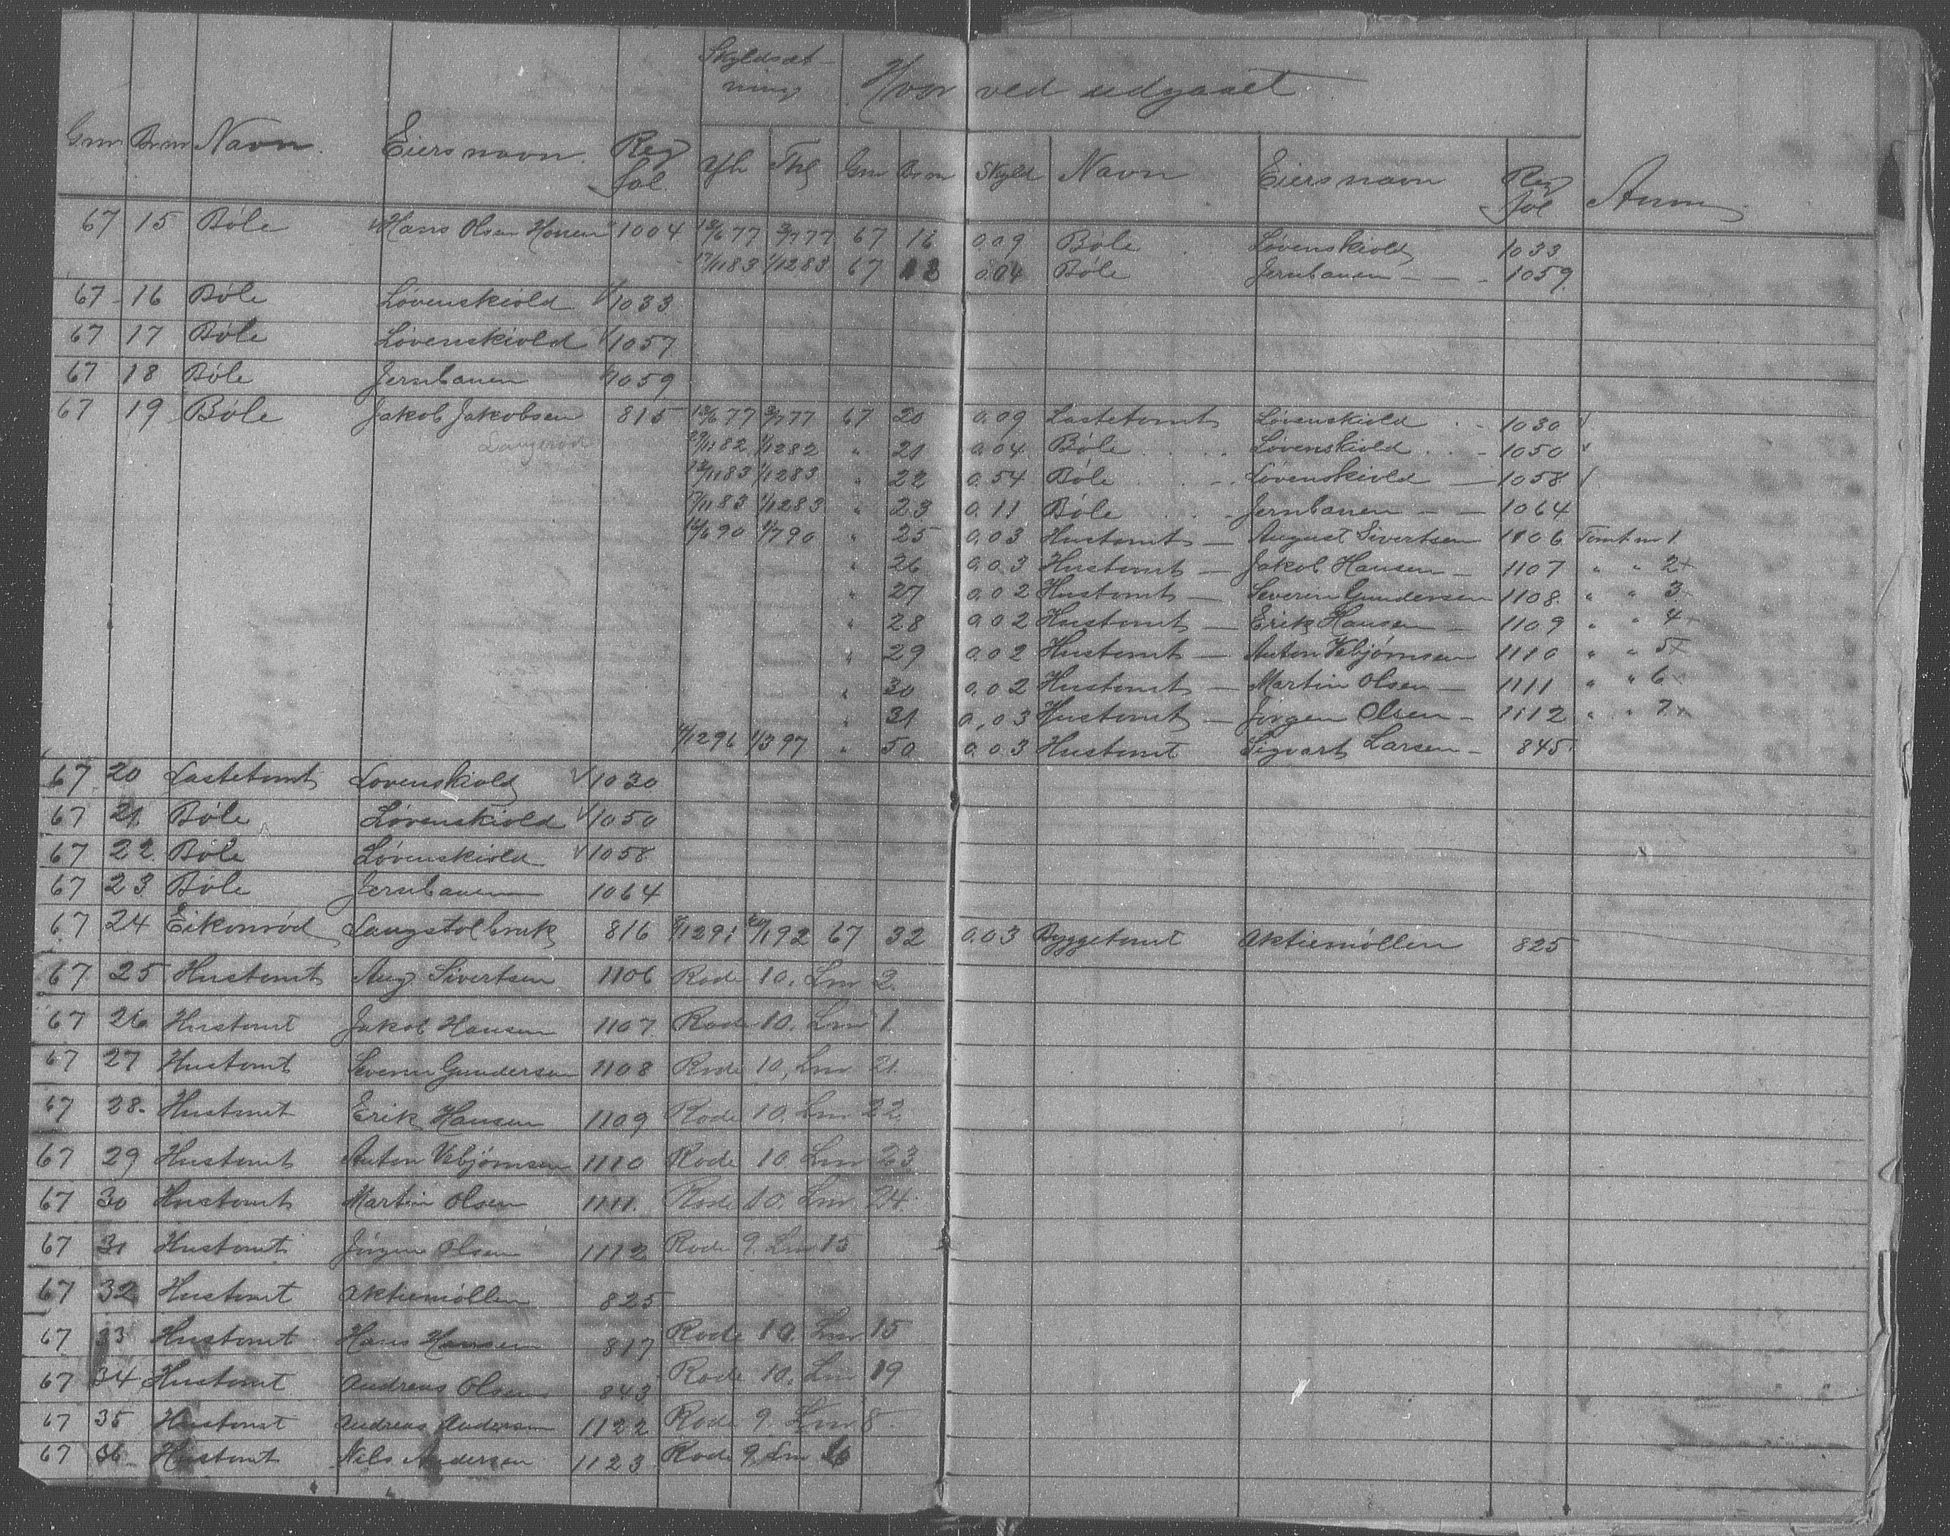 Skyldsæt-
ning
Hvor ved udgaaet
Gnr Brnr Navn. Eiers navn. Reg fol. Afh Thl Gnr Brnr Skyld Navn Eiersnavn Reg Fol. Anm
67 15 Bøle Hans Olsen 1004 12/6 77 2/7 77 67 16 0.09 Bøle Løvenskiold 1033
17/11 83 1/12 83 67 0.04 Bøle Jernbanen 1059
67 16 Bøle Løvenskiold 1033
67 17 Bøle Løvenskiold 1057
67 18 Bøle Jernbanen 1059
67 19 Bøle Jakob Jakobsen 815 12/6 77 2/7 77 67 20 0.09 Lastetomt Løvenskiold 1030
Langerød 29/11 82 1/12 82 " 21 0.04 Bøle Løvenskiold 1050
1/12 83 " 22 0.54 Bøle Løvenskiold 1058
17/11 83 1/12 83 " 23 0.11 Bøle Jernbanen 1064
14/6 90 1/7 90 " 25 0.03 Hustomt August Sivertsen 1106 Tomt nr 1
" 26 0.03 Hustomt Jakob Hansen 1107 " " 2
" 27 0.02 Hustomt Severin Gundersen 1108 " " 3
" 28 0.02 Hustomt Erik Hansen 1109 " " 4
" 29 0.02 Hustomt Anton Vebjørnsen 1110 " " 5
" 30 0.02 Hustomt Martin Olsen 1111 " " 6
" 31 0.03 Hustomt Jørgen Olsen 1112 " " 7
/12 96 1/3 97 " 50 0.03 Hustomt Sigvart Larsen 845
67 20 Lastetomt Løvenskiold 1030
67 21 Bøle Løvenskiold 1050
67 22 Bøle Løvenskiold 1058
67 23 Bøle Jernbanen 1064
67 24 Eikonrød Langstolbruk 816 /12 91 /1 92 67 32 0.03 Byggetomt Aktiemøllen 825
67 25 Hustomt Aug Sivertsen 1106 Rode 10. Lnr 2.
67 26 Hustomt Jakob Hansen 1107 Rode 10. Lnr 1.
67 27 Hustomt Severin Gundersen 1108 Rode 10, Lnr 21.
67 28 Hustomt Erik Hansen 1109 Rode 10. Lnr 22
67 29 Hustomt Anton Vebjørnsen 1110 Rode 10 Lnr 23
67 30 Hustomt Martin Olsen 1111 Rode 10. Lnr 24.
67 31 Hustomt Jørgen Olsen 1112 Rode 9. Lnr 15
67 32 Hustomt Aktiemøllen 825
67 33 Hustomt Hans Hansen 817 Rode 10. Lnr 15
67 34 Hustomt Andreas Olsen 843 Rode 10. Lnr 19
67 35 Hustomt Andreas Andersen 1122 Rode 9. Lnr 8
67 36 Hustomt Nils Andersen 1123 Rode 9, Lnr